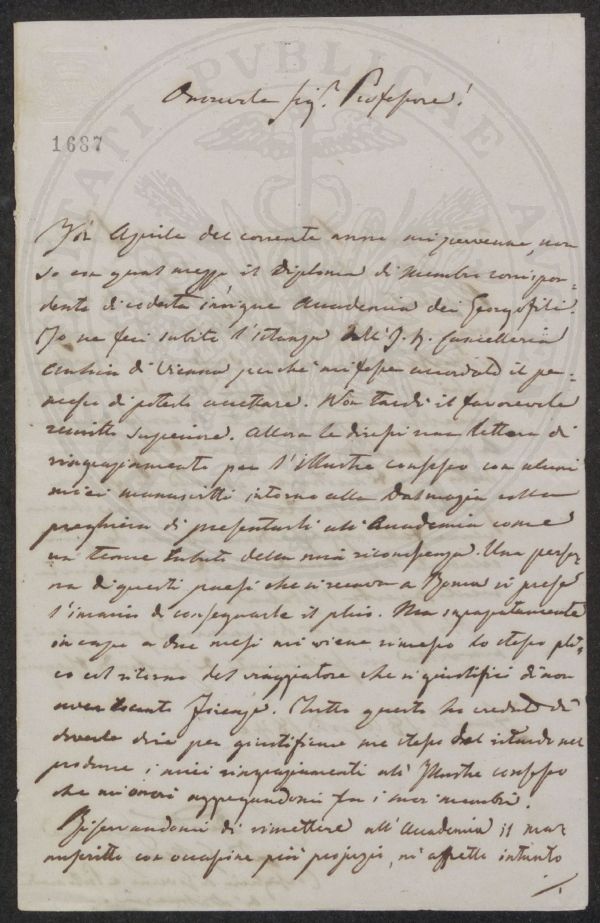 Onorevole Sigr. Professore!
1687
Nell' Aprile del corrente anno mi pervenne, non
so con qual mezzo il Diploma di Membro corrispon-
dente di codesta insigne Accademia dei Georgofili.
Io ne feci subito l'istanza all'I. R. Cancelleria
Aulica di Vienna perchè mi fosse accordato il per-
messo di poterlo accettare. Non tardò il favorevole
rescritto Superiore. Allora le diressi una lettera di
ringraziamento per l'illustre consesso con alcuni
miei manuscritti intorno alla Dalmazia colla
preghiera di presentarli all'Accademia come
un tenue tributo della mia riconoscenza. Una perso-
na di questi paesi che si recava a Roma si prese
l'incarico di consegnarle il plico. Ma inaspettatamente
in capo a due mesi mi viene rimesso lo stesso pli-
co col ritorno del viaggiatore che si giustificò di non
aver toccato Firenze. Tutto questo ho creduto di
doverle dire per giustificare me stesso del ritardo nel
produrre i miei ringraziamenti all'Illustre consesso
che mi onorò aggregandomi fra i suoi membri.
Riservandomi di rimettere all'Accademia il ma-
nuscritto con occasione più propizia, mi affretto intanto
PVBLICAE